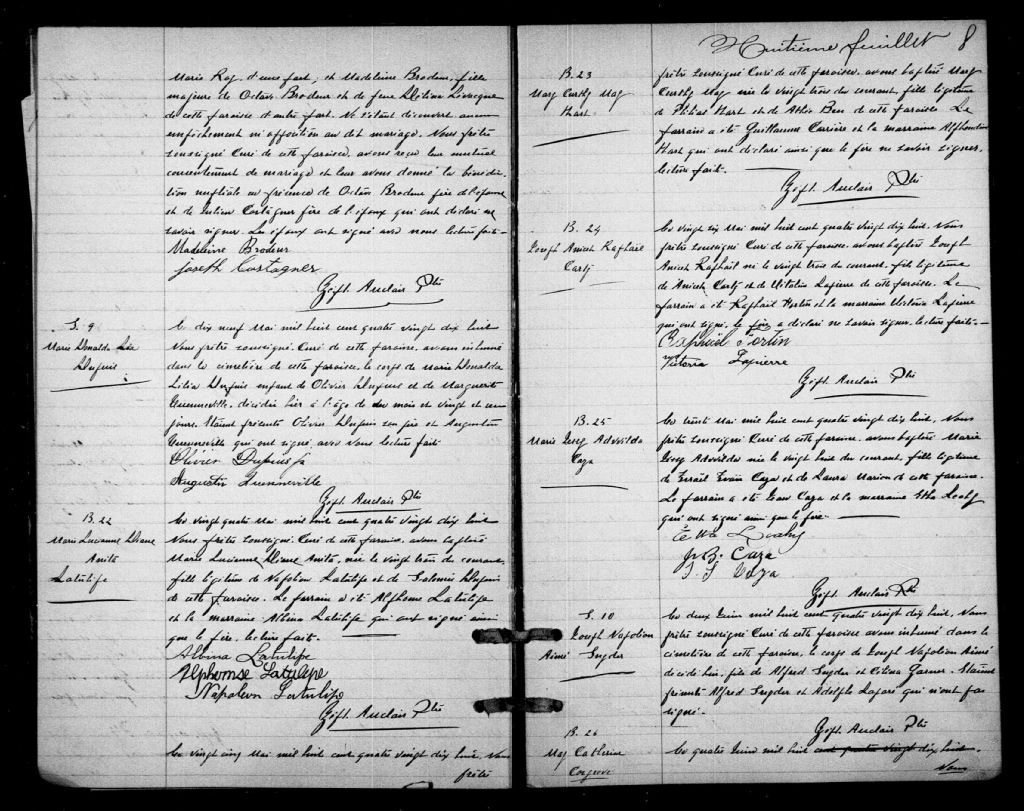 Marie Roy d'une part; et Madeleine Brodeur, fille
majeure de Octave Brodeur et de feue Levacque
de cette paroisse d'autre part. Ne s'étant découvert aucun
empêchement ni opposition au dit mariage. Nous prêtre
soussigné Curé de cette paroisse, avons reçu leur mutuel
consentement de mariage et leur avons donné la bénédic-
tion nuptiale en présence de Octave Brodeur père de l'épouse
et de Costagner père de l'époux qui ont déclaré ne
savoir signer. Les époux ont signé avec nous lecture faite.
Madeleine Brodeur
Joseph Costagner
Zéph. Auclair Ptre
S. 9
Marie Donalda Léa
Dupuis
Le dix neuf Mai mil huit cent quatre vingt dix huit
Nous prêtre soussigné. Curé de cette paroisse, avons inhumé
dans le cimetière de cette paroisse, le corps de Marie Donalda
Dupuis enfant de Olivier Dupuis et de Marguerite
Quenneville, décédée hier à l'âge de un mois et vingt et un
jours. Etaient présents Olivier Dupuis son père et Augustin
Quenneville qui ont signé avec Nous lecture faite
Olivier Dupuis
Augustin Quenneville
Zéph. Auclair Ptre
B. 22
Marie Lucienne Diane
Anita
Latulipe
Le vingt quatre Mai mil huit cent quatre vingt dix huit
Nous prêtre soussigné. Curé de cette paroisse, avons baptisé
Marie Lucienne Diane Anita, née le vingt trois du courant
fille légitime de Napoléon Latulipe et de Salomée Dupuis
de cette paroisse. Le parrain a été Alphonse Latulipe
et la marraine Albina Latulipe qui ont signé ainsi
que le père. lecture faite.
Albina Latulipe
Alphonse Latulipe
Napoleon Latulipe
Zéph. Auclair Ptre
Le vingt cinq Mai mil huit cent quatre vingt dix huit, Nous
prêtre
Huitième feuillet 8
B. 23
May
Hart
prêtre soussigné Curé de cette paroisse, avons baptisé Mary
May née le vingt trois du courant, fille légitime
de Hart et de de cette paroisse. Le
parrain a été Guillaume Carrière et la marraine Alphonsine
Hart qui ont déclaré ainsi que le père ne savoir signer.
lecture faite.
Zéph. Auclair Ptre
B. 24
Joseph Anicet Raphael
Le vingt six Mai mil huit cent quatre vingt dix huit. Nous
prêtre soussigné Curé de cette paroisse, avons baptisé Joseph
Anicet Raphaël né le vingt trois du courant, fils légitime
de Anicet et de Lapierre de cette paroisse. Le
parrain a été Raphaël Fortin et la marraine Victoria Lapierre
qui ont signé, le père a déclaré ne savoir signer, lecture faite.
Raphaël Fortin
Victoria Lapierre
Zéph. Auclair Ptre
B. 25
Marie
Caza
Le trente Mai mil huit cent quatre vingt dix huit. Nous
prêtre soussigné Curé de cette paroisse. avons baptisé Marie
née le vingt huit du courant, fille légitime
de Caza et de Laura Marion de cette paroisse.
Le parrain a été Caza et la marraine
qui ont signé ainsi que le père.
Etta
J. B. Caza
Caza
Zéph. Auclair Ptre
S. 10
Joseph Napoléon
Aimé Snyder
Le deux Juin mil huit cent quatre vingt dix huit, Nous
prêtre soussigné Curé de cette paroisse avons inhumé dans le
cimetière de cette paroisse, le corps de Joseph Napoléon Aimé
décédé hier, fils de Alfred Snyder et Garner. Etaient
présents Alfred Snyder et Adolphe qui n'ont pas
signé.
Zéph. Auclair Ptre
B. 26
May Catherine
Cosgrove
Le quatre Juin mil huit cent quatre vingt dix huit.
Nous